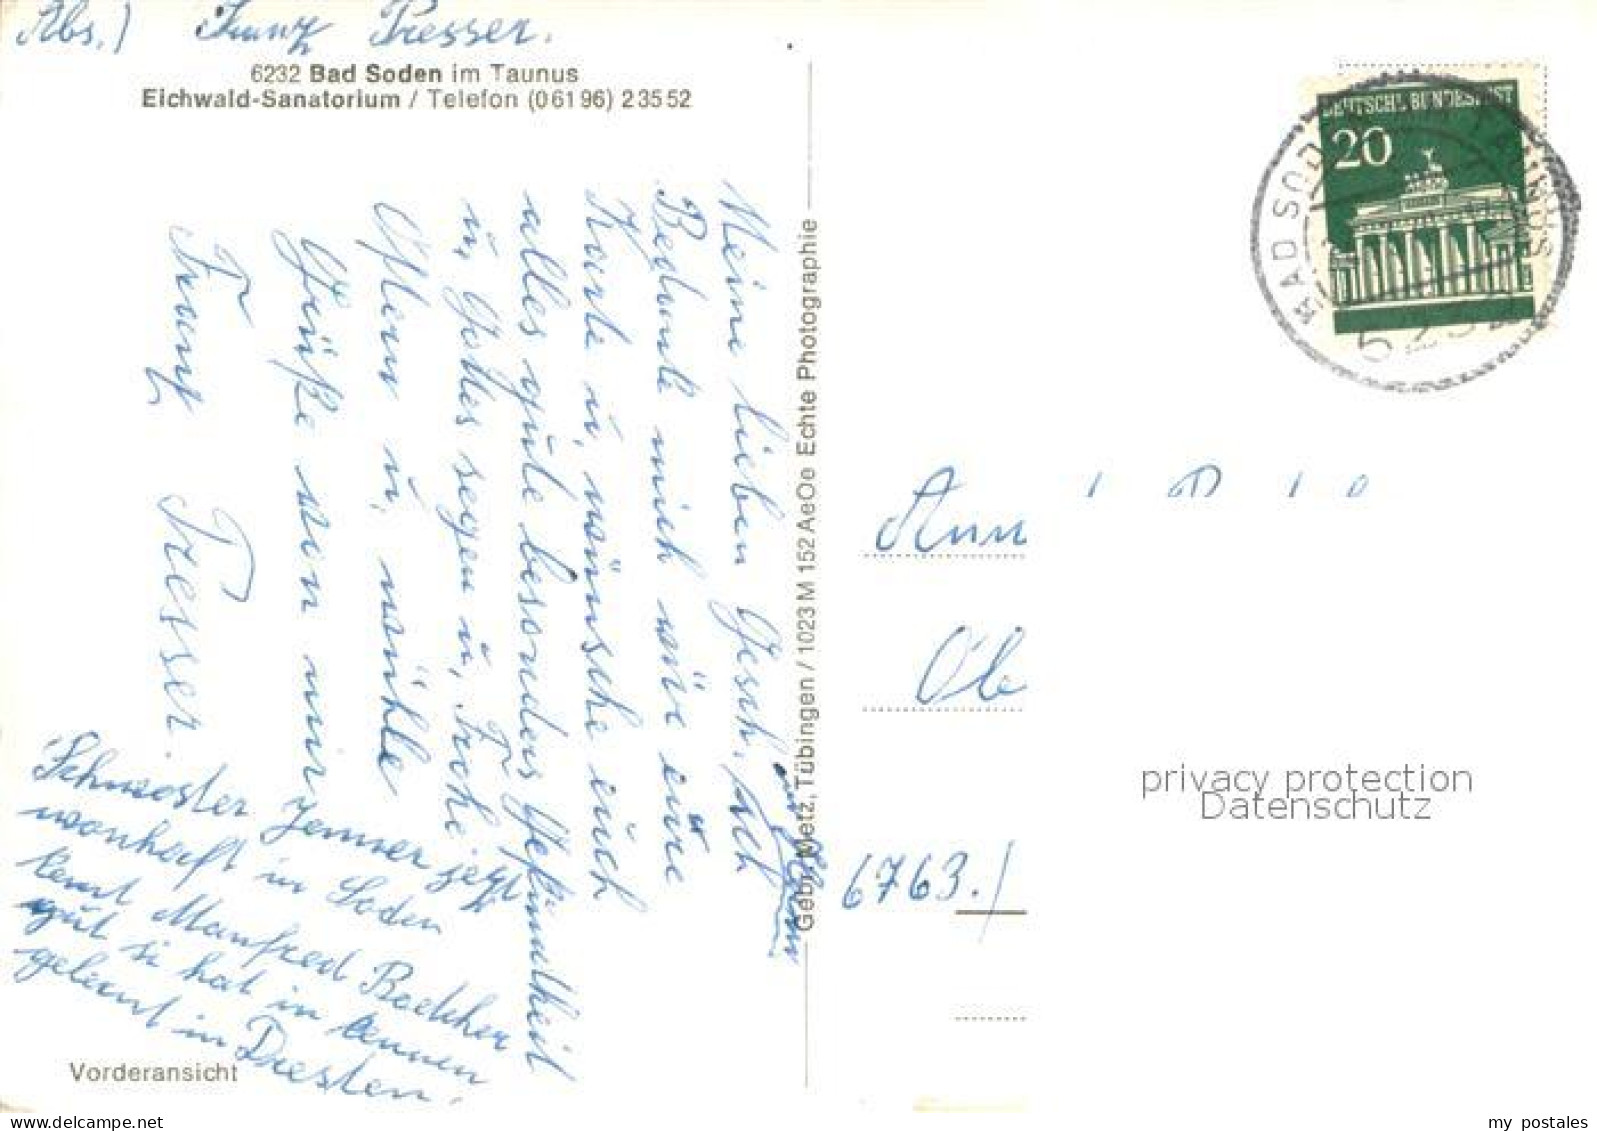 Abs.) Franz Presser.
6232 Bad Soden im Taunus
Eichwald-Sanatorium / Telefon (06196) 23552
Meine lieben Gesch. Ach
Bedanke mich für eure
Karte u. wünsche euch
alles gute besonders Gesundheit
u. Gottes segen u. Frohe
Ostern u. 
Grüße von mir
Franz Presser.
Schwester Jenner jetzt
wonhaft in Soden
kent Manfred Boekher
gut si hat in kennen
gelernt in Dresten.
Vorderansicht
Gebr. Metz, Tübingen / 1023 M 152 AeOe Echte Photographie
DEUTSCHE BUNDESPOST
20
BAD SODEN TAUNUS
623
Ann
Ob
6763./
privacy protection
Datenschutz
www.delcampe.net
my_postales